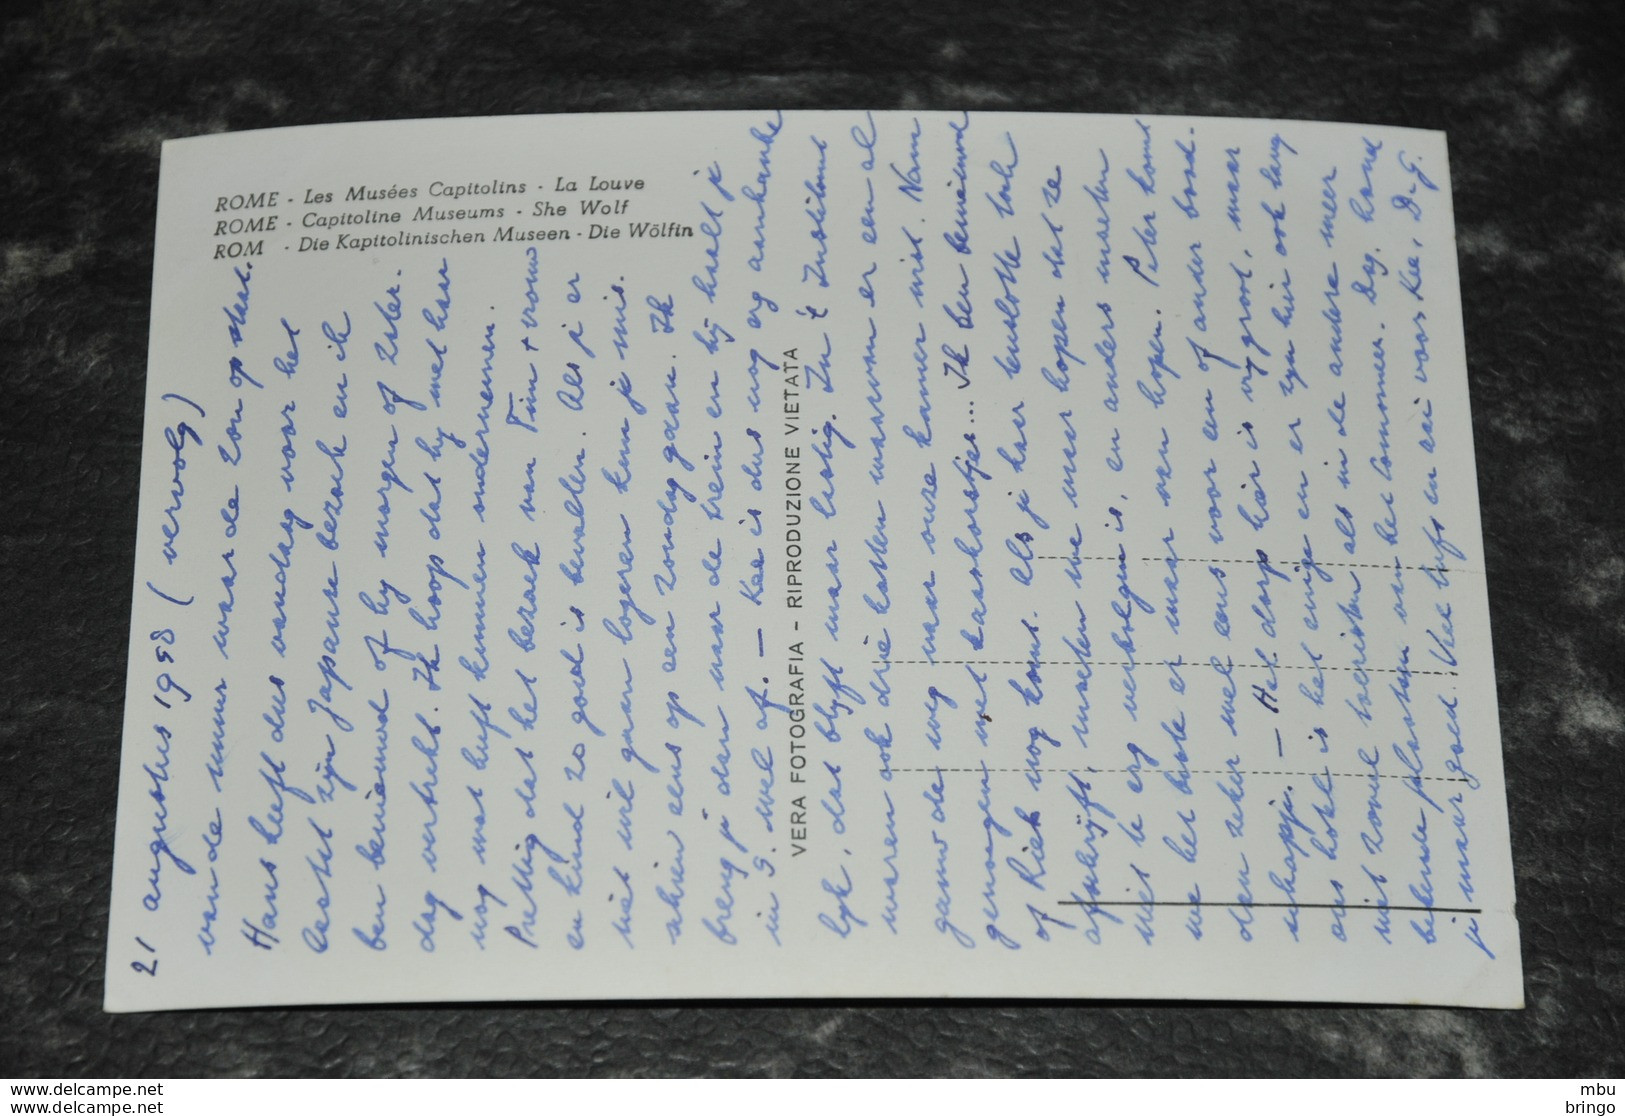 ROME - Les Musées Capitolins - La Louve
ROME - Capitoline Museums - She Wolf
ROM - Die Kapitolinischen Museen - Die Wölfin
VERA FOTOGRAFIA - RIPRODUZIONE VIETATA
21 augustus 1958 (vervolg)
vande muur waar de zon op staat.
Hans heeft dus vandaag voor het
laatst zijn Japanse bezoek en ik
ben benieuwd of hij morgen of zater.
dag vertrekt. Ik hoop dat hij met haar
nog wat heeft kunnen ondernemen.
Prettig dat het bezoek van Tim + vrouw
en kind zo goed is bevallen. Als je er
niet wil gaan logeren kun je mis.
schien eens op een zondag gaan. Ik
breng je dan naar de trein en hij haalt je
in S. wel af. — Kee is dus nog erg aanhanke
lijk, dat blijft maar lastig. In 't Instituut
waren ook drie katten waarvan er een al
gauw de weg naar onze kamer wist. Nam
genoegen met kaaskorstjes... Ik ben benieuwd
of Riek nog komt. Als je haar tenslotte toch
afschrijft, moeten we maar hopen dat ze
niet te erg verbolgen is, en anders moeten
we het beste er maar van hopen. Peter komt
dan zeker wel eens voor een of ander bood.
schapje. — Het dorp hier is vrij groot, maar
ons hotel is het enige en er zijn hier ook lang
niet zoveel toeristen als in de andere meer
bekende plaatsen aan het Commeer. Dag. houd
je maar goed. Veel liefs en aai voor Kee, D. G.
mbu
bringo
www.delcampe.net
www.delcampe.net